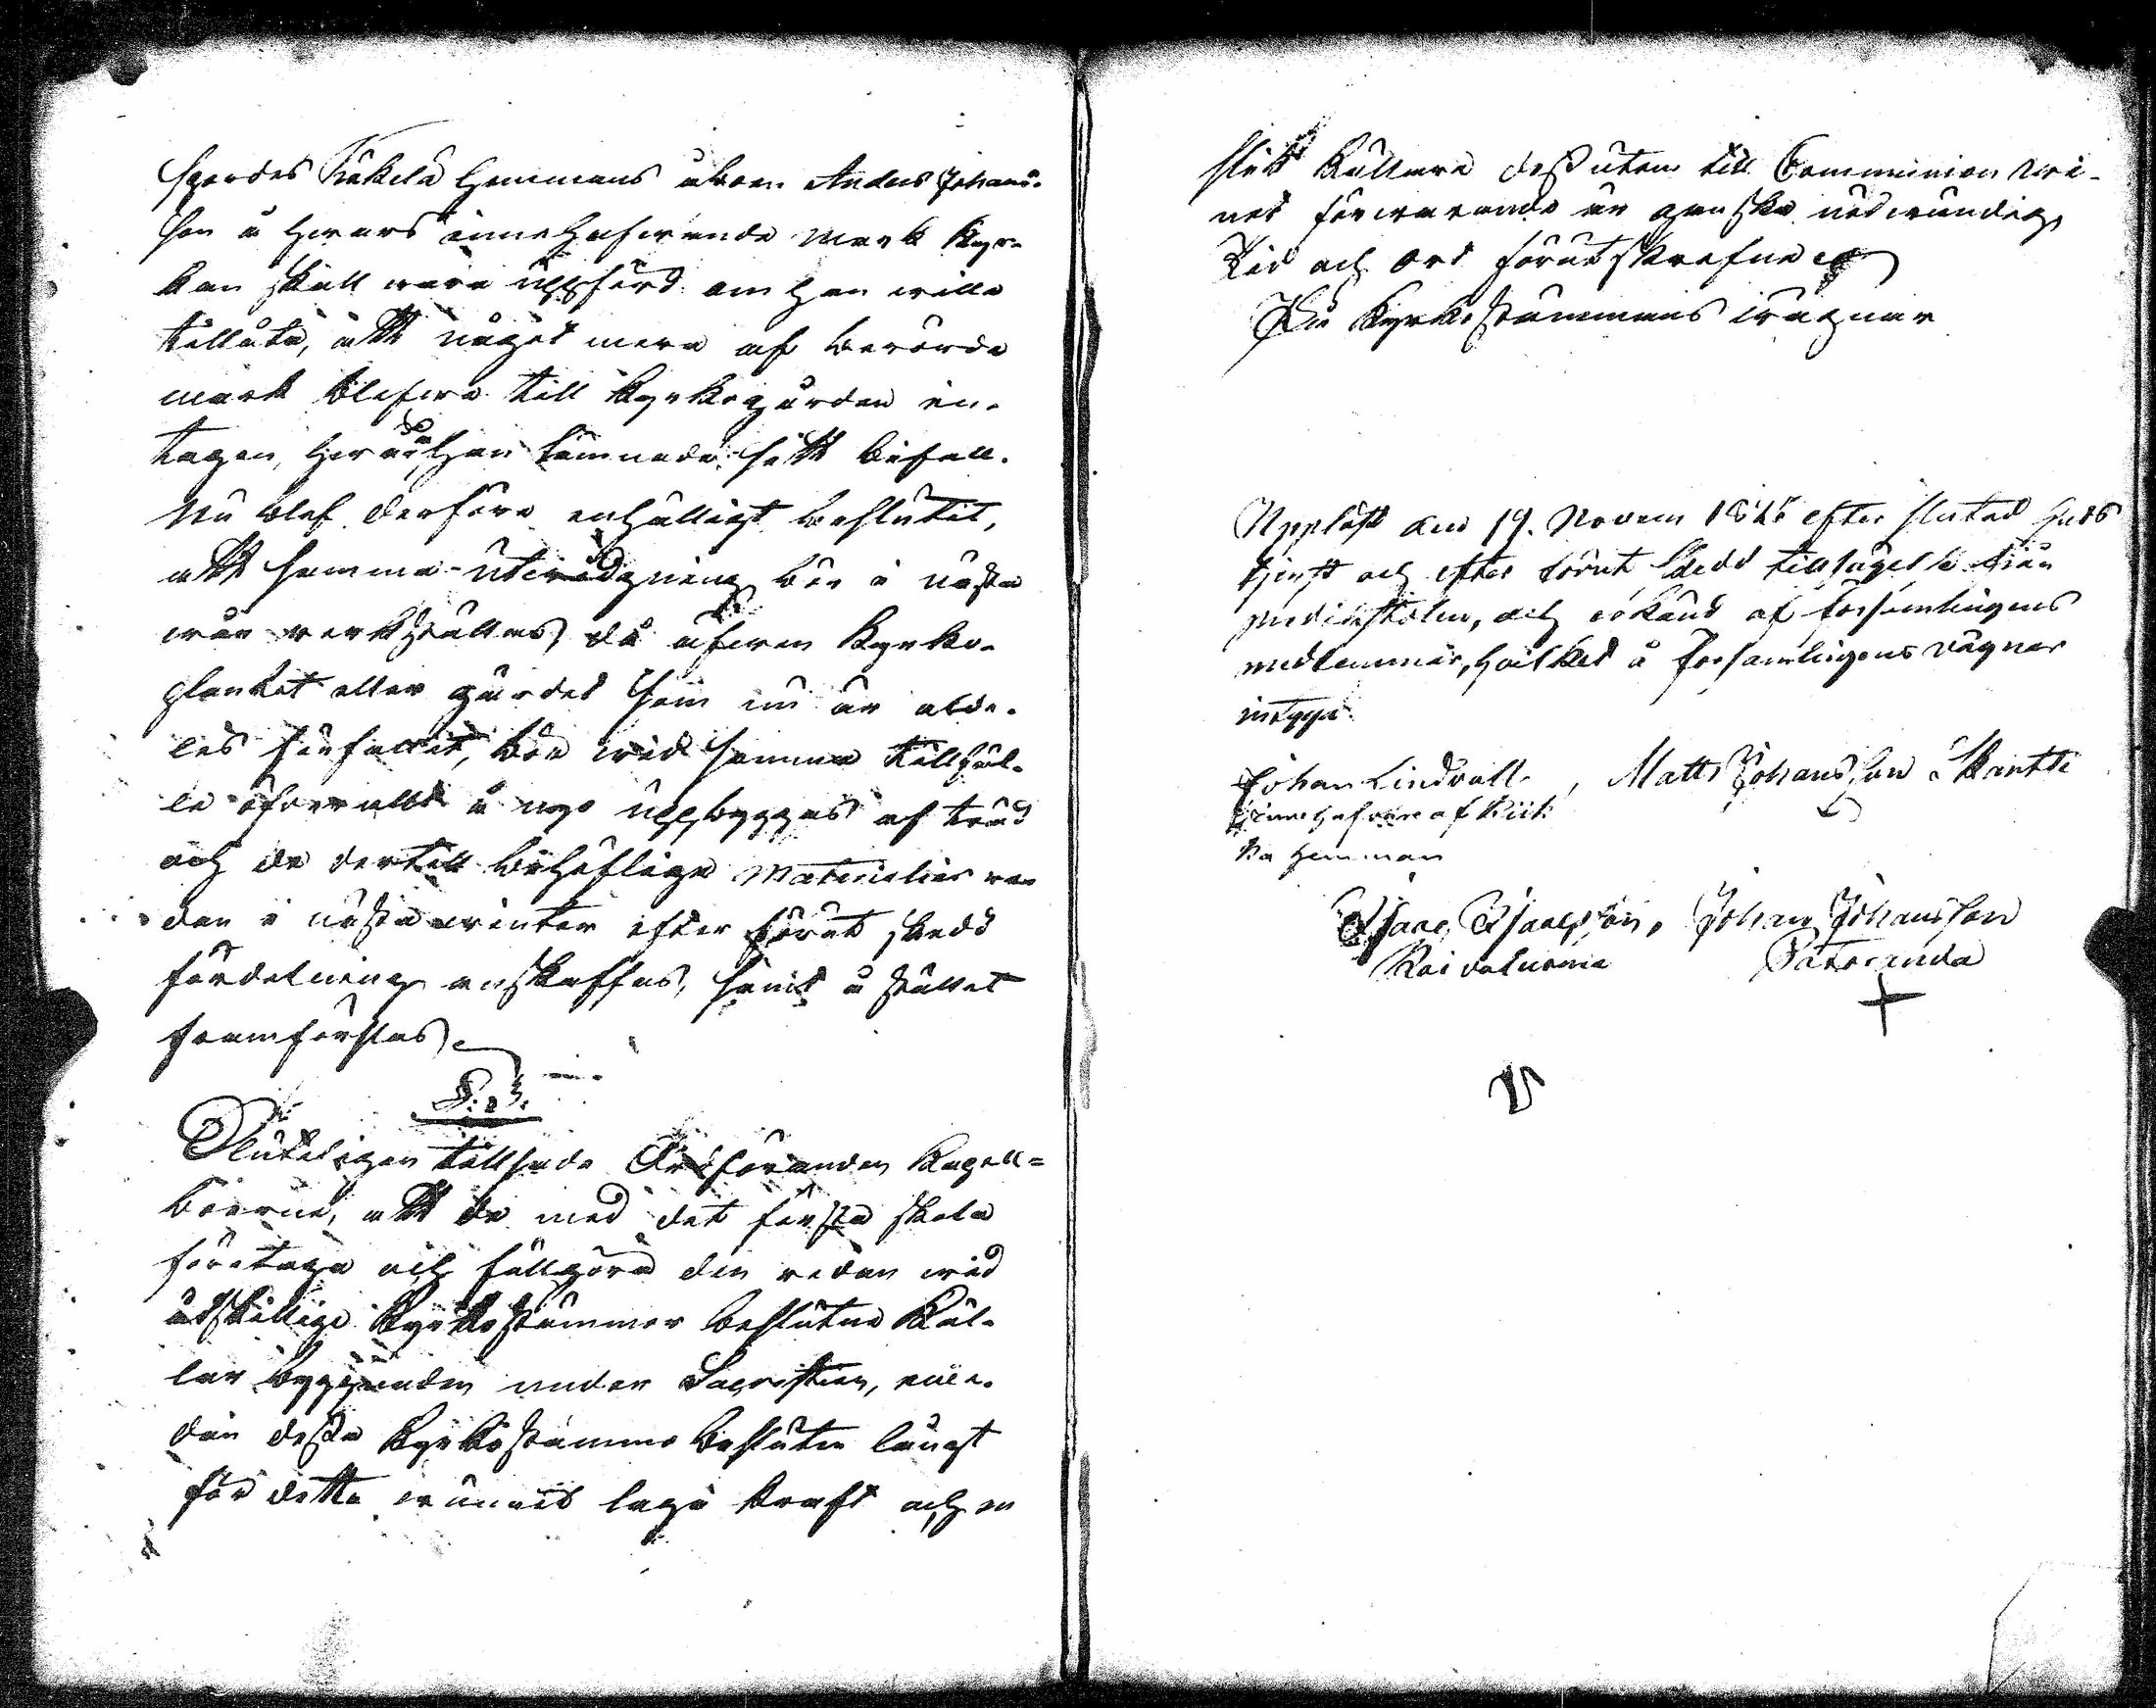 spordes Käkelä Hemmans åboen Anders Johans-
son å hwars innehafwande mark Kyr-
kan skall wara uppförd om han wille
tillåta, att något mera af berörde
mark blefwe till Kyrkogården in-
tagen, hwartill han lemnade sitt bifall.
Nu blef derföre enhälligt beslutit,
att samma utwidgning bör i nästa
wår werkställas, då äfwen Kyrko-
planket eller gärdet som nu är alde-
les förfallit, bör wid samma tillfäl-
le öfwerallt å nyo uppbyggas af träd
och de dertill behöflige Materialier re-
dan i nästa winter efter förut skedd
fördelning anskaffas, samt å stället
framforslas.
§: 3.
Sluteligen tillsade Ordföranden Kapell-
boerne, att de med det första skola
företaga och fullgöra den redan wid
åtskillige Kyrkostämmor beslutne Käl-
lar byggnaden under Sacristian, eme-
dan dessa Kyrkostämmo besluten längst
för detta wunnit laga kraft och en
slik Källare dessutom till Communion wi-
nets förwarande är ganska nödwändig,
Tid och Ort förutskrefne
På Kyrkostämmans wägnar
Uppläst den 19. Novem 1848 efter slutad Guds
tjenst och efter förut skedd tillsägelse från
predikstolen, och erkänd af församlingens
medlemmar, hvilket å församlingens vägnar
intyga.
Johan Lindvall, Matts Johansson Skantti
innehafvare af
ka Hemman
Isaac Isacsson, Johan Johansson
Koivaluoma Patoranda